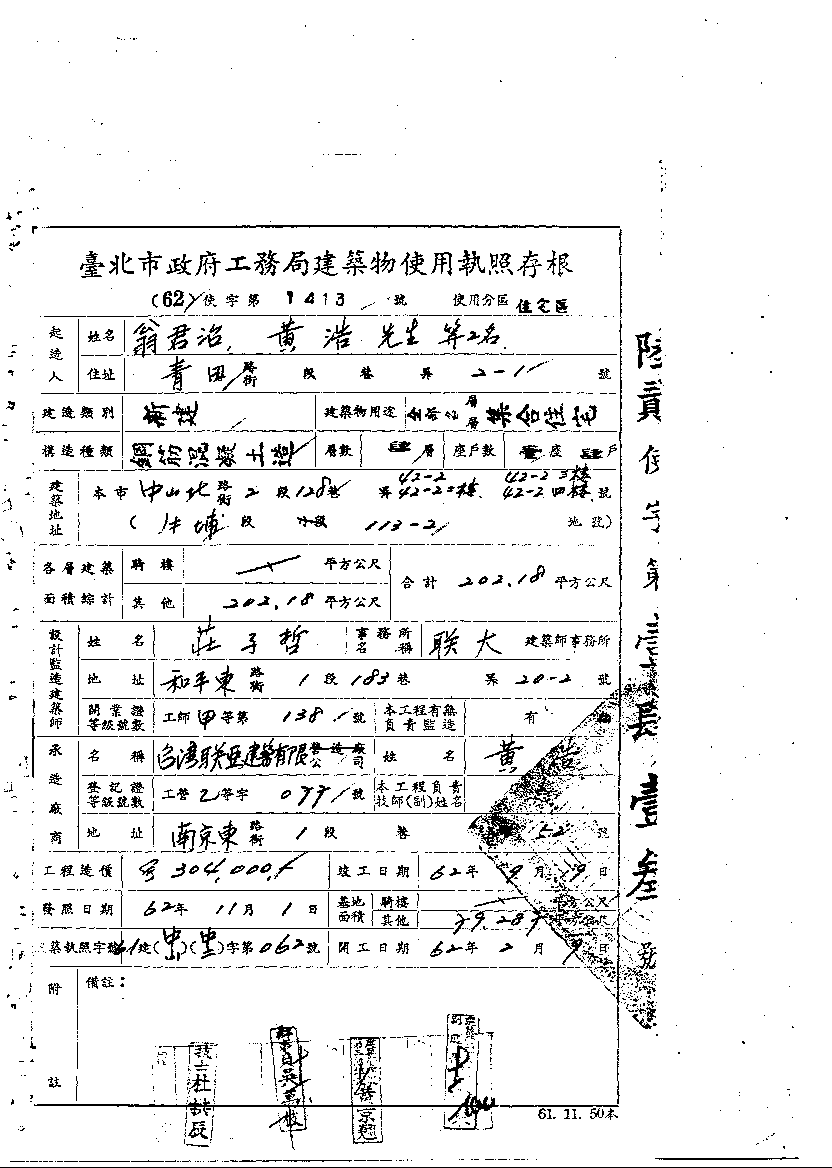 臺北市政府工務局建築物使用執照存根
(62)使字第 1413 號 使用分區 住宅區
起造人 姓名 翁君治、黃浩 先生等2名
住址 青田 路街 段 巷 弄 2-1 號
建造類別 新建 建築物用途 層層 集合住宅
構造種類 鋼筋混凝土造 層數 肆 層 座戶數 壹 座 肆 戶
建築地址 本市 中山北 路街 2 段 128 巷 弄 42-2 42-2二樓、42-2三樓 42-2四樓 號
( 牛埔 段 小段 113-2 地號)
各層建築面積綜計 騎樓 平方公尺 合計 202.18 平方公尺
其他 202.18 平方公尺
設計監造建築師 姓名 莊子哲 事務所名稱 联大 建築師事務所
地址 和平東 路街 1 段 183 巷 弄 20-2 號
開業證等級號數 工師 甲 等第 1381 號 本工程有無負責監造 有
承造廠商 名稱 台灣联亞建築有限 營造廠公司 姓名 黃浩
登記證等級號數 工營 乙 等字 0771 號 本工程負責技師(副)姓名
地址 南京東 路街 1 段 巷 52 號
工程造價 304,000 竣工日期 62年 9月 19日
發照日期 62年 11月 1日 基地面積 騎樓 平方公尺
其他 79.287
築執照字號 61建( )( )字第 062 號 開工日期 62年 2月 9日
附註 備註:
技士杜詩辰
61. 11. 50本
陸貳使字第壹肆壹叁號